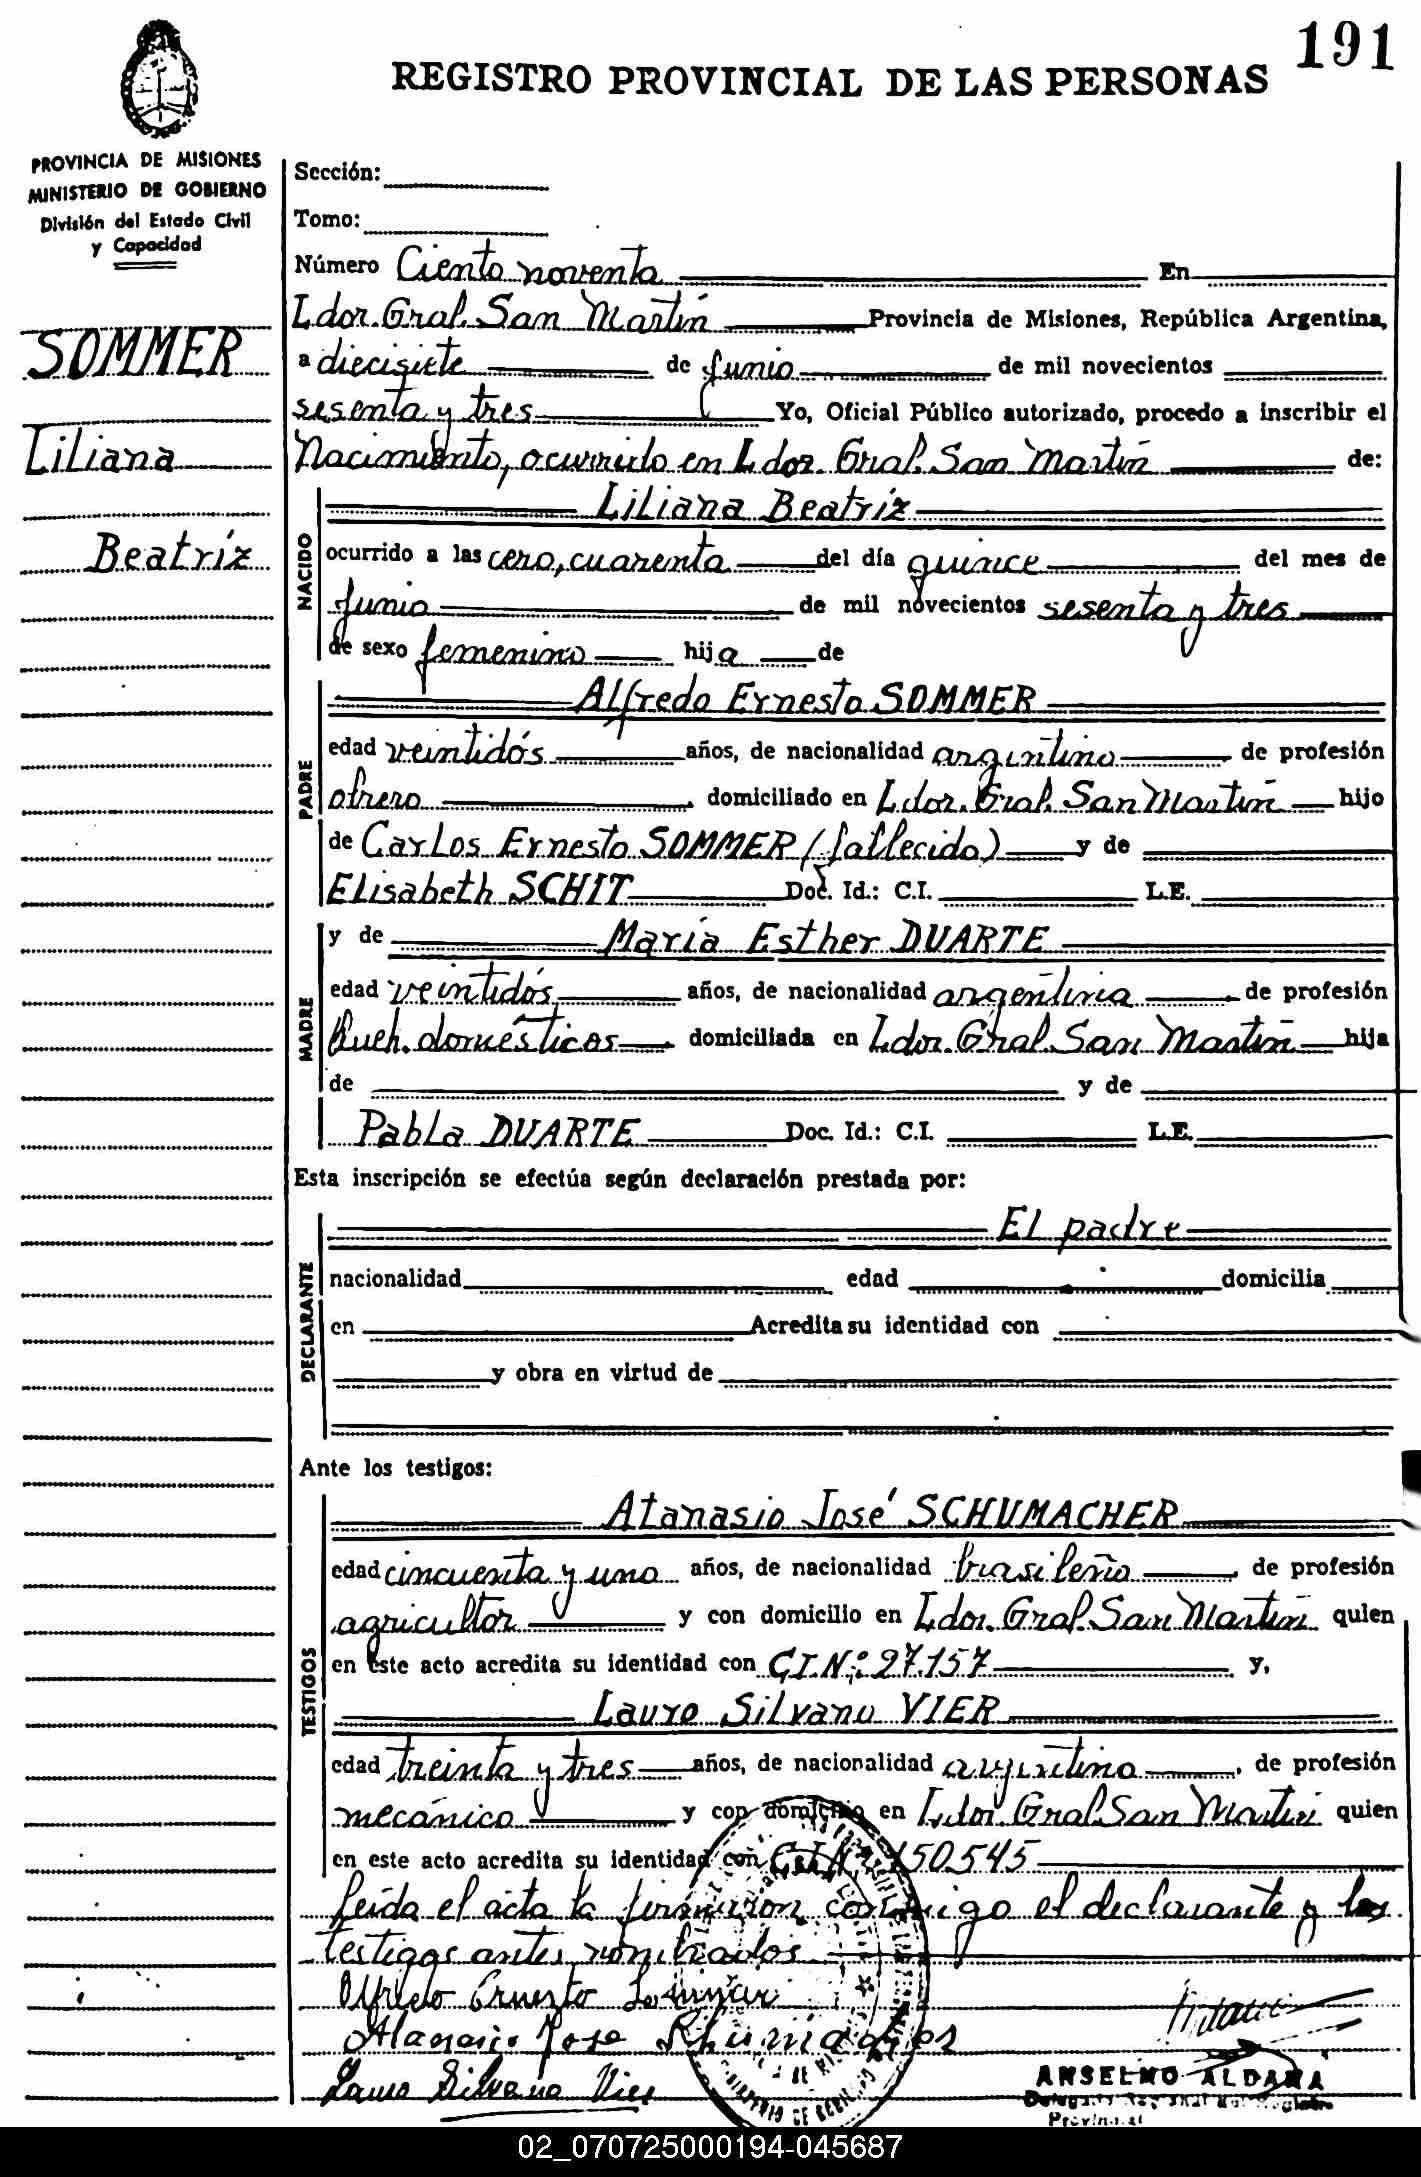 191
REGISTRO PROVINCIAL DE LAS PERSONAS
PROVINCIA DE MISIONES
MINISTERIO DE GOBIERNO
División del Estado Civil
y Capacidad
SOMMER
Liliana
Beatríz
Sección:
Tomo:
Número Ciento noventa En
Ldor. Gral. San Martín Provincia de Misiones, República Argentina,
a diecisiete de junio de mil novecientos
sesenta y tres Yo, Oficial Público autorizado, procedo a inscribir el
Nacimiento, ocurrido en Ldor. Gral. San Martín de:
NACIDO
Liliana Beatríz
ocurrido a las cero, cuarenta del día quince del mes de
junio de mil novecientos sesenta y tres
de sexo femenino hija de
PADRE
Alfredo Ernesto SOMMER
edad veintidós años, de nacionalidad argentino de profesión
obrero domiciliado en Ldor. Gral. San Martín hijo
de Carlos Ernesto SOMMER (fallecido) y de
Elisabeth SCHIT Doc. Id.: C.I. L.E.
MADRE
y de María Esther DUARTE
edad veintidós años, de nacionalidad argentina de profesión
Queh. domésticos domiciliada en Ldor. Gral. San Martín hija
de y de
Pabla DUARTE Doc. Id.: C.I. L.E.
Esta inscripción se efectúa según declaración prestada por:
DECLARANTE
El padre
nacionalidad edad domicilia
en Acredita su identidad con
y obra en virtud de
Ante los testigos:
TESTIGOS
Atanasio José SCHUMACHER
edad cincuenta y uno años, de nacionalidad brasileño de profesión
agricultor y con domicilio en Ldor. Gral. San Martín quien
en este acto acredita su identidad con C.I.Nº: 27.157 y,
Lauro Silvano VIER
edad treinta y tres años, de nacionalidad argentino, de profesión
mecánico y con domicilio en Ldor. Gral. San Martín quien
en este acto acredita su identidad con C.I.Nº 150545
Leída el acta la firmaron conmigo el declarante y los
testigos antes nombrados
Alfredo Ernesto Sommer
Atanasio Jose
Lauro Silvano Vier
ANSELMO ALDANA
Provincial
02_070725000194-045687